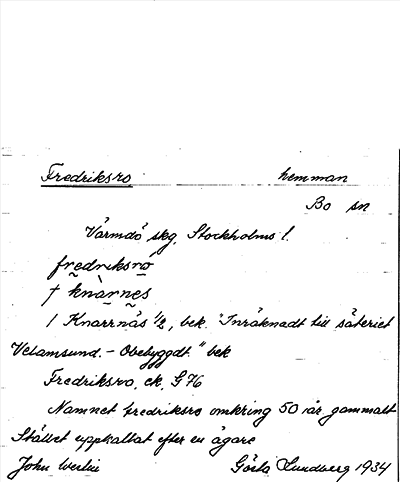 Fredriksro hemman
Bo sn
Värmdö skg, Stockholms l.
fredriksro
† knàrnes
1 Knarrnäs 1/2, bek. "Inräknadt till säteriet
Velamsund. - Obebyggdt." bek
Fredriksro, ek. G 76
Namnet fredriksro omkring 50 år gammalt
Stället uppkallat efter en ägare
John Gösta Lundberg 1934